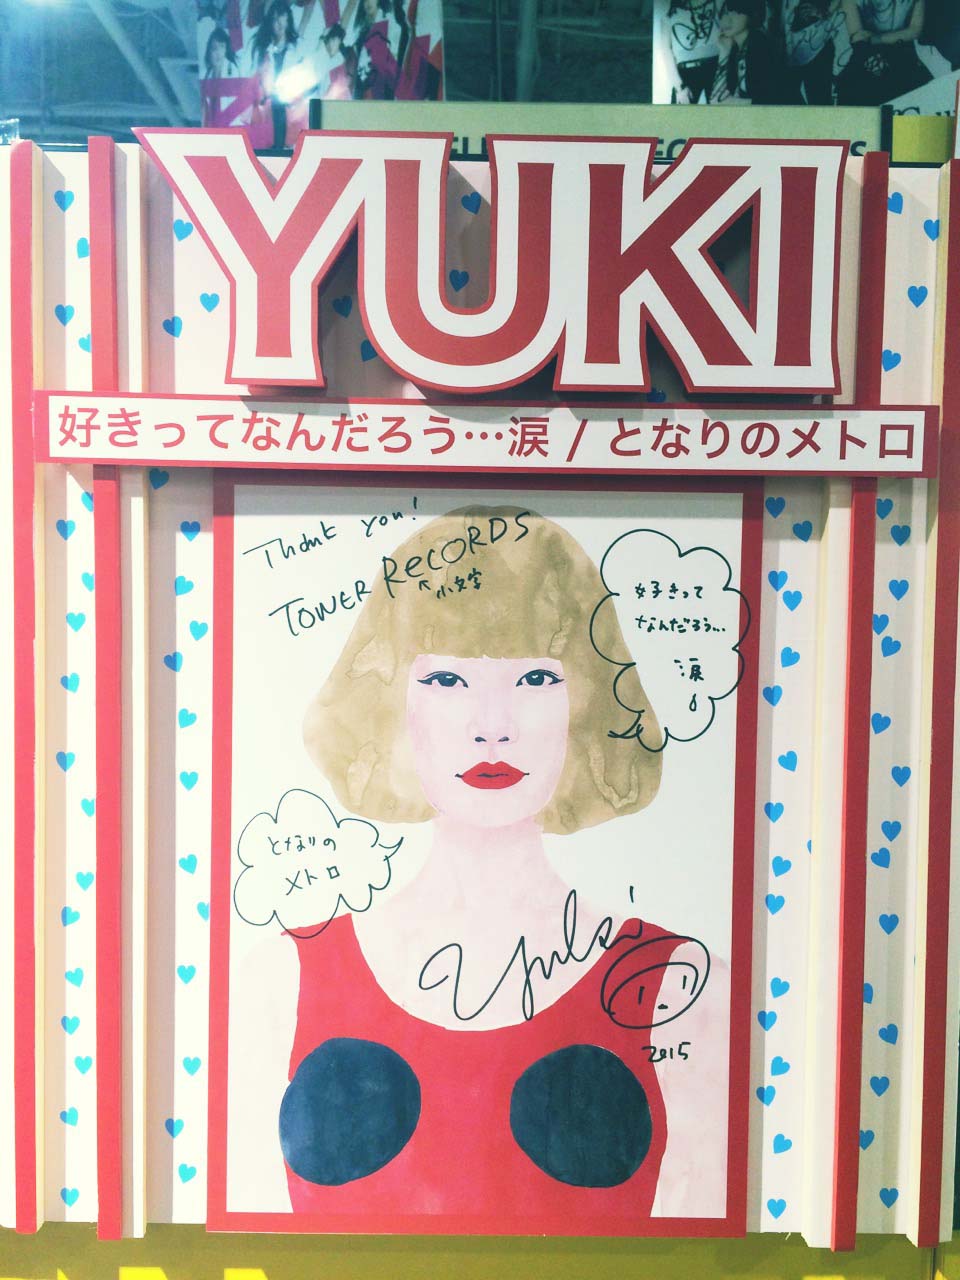 YUKI
好きってなんだろう…涙 / となりのメトロ
Thank you!
TOWER ReCORDS
↖小文字
好きって
なんだろう…
涙
となりの
メトロ
Yuki
2015